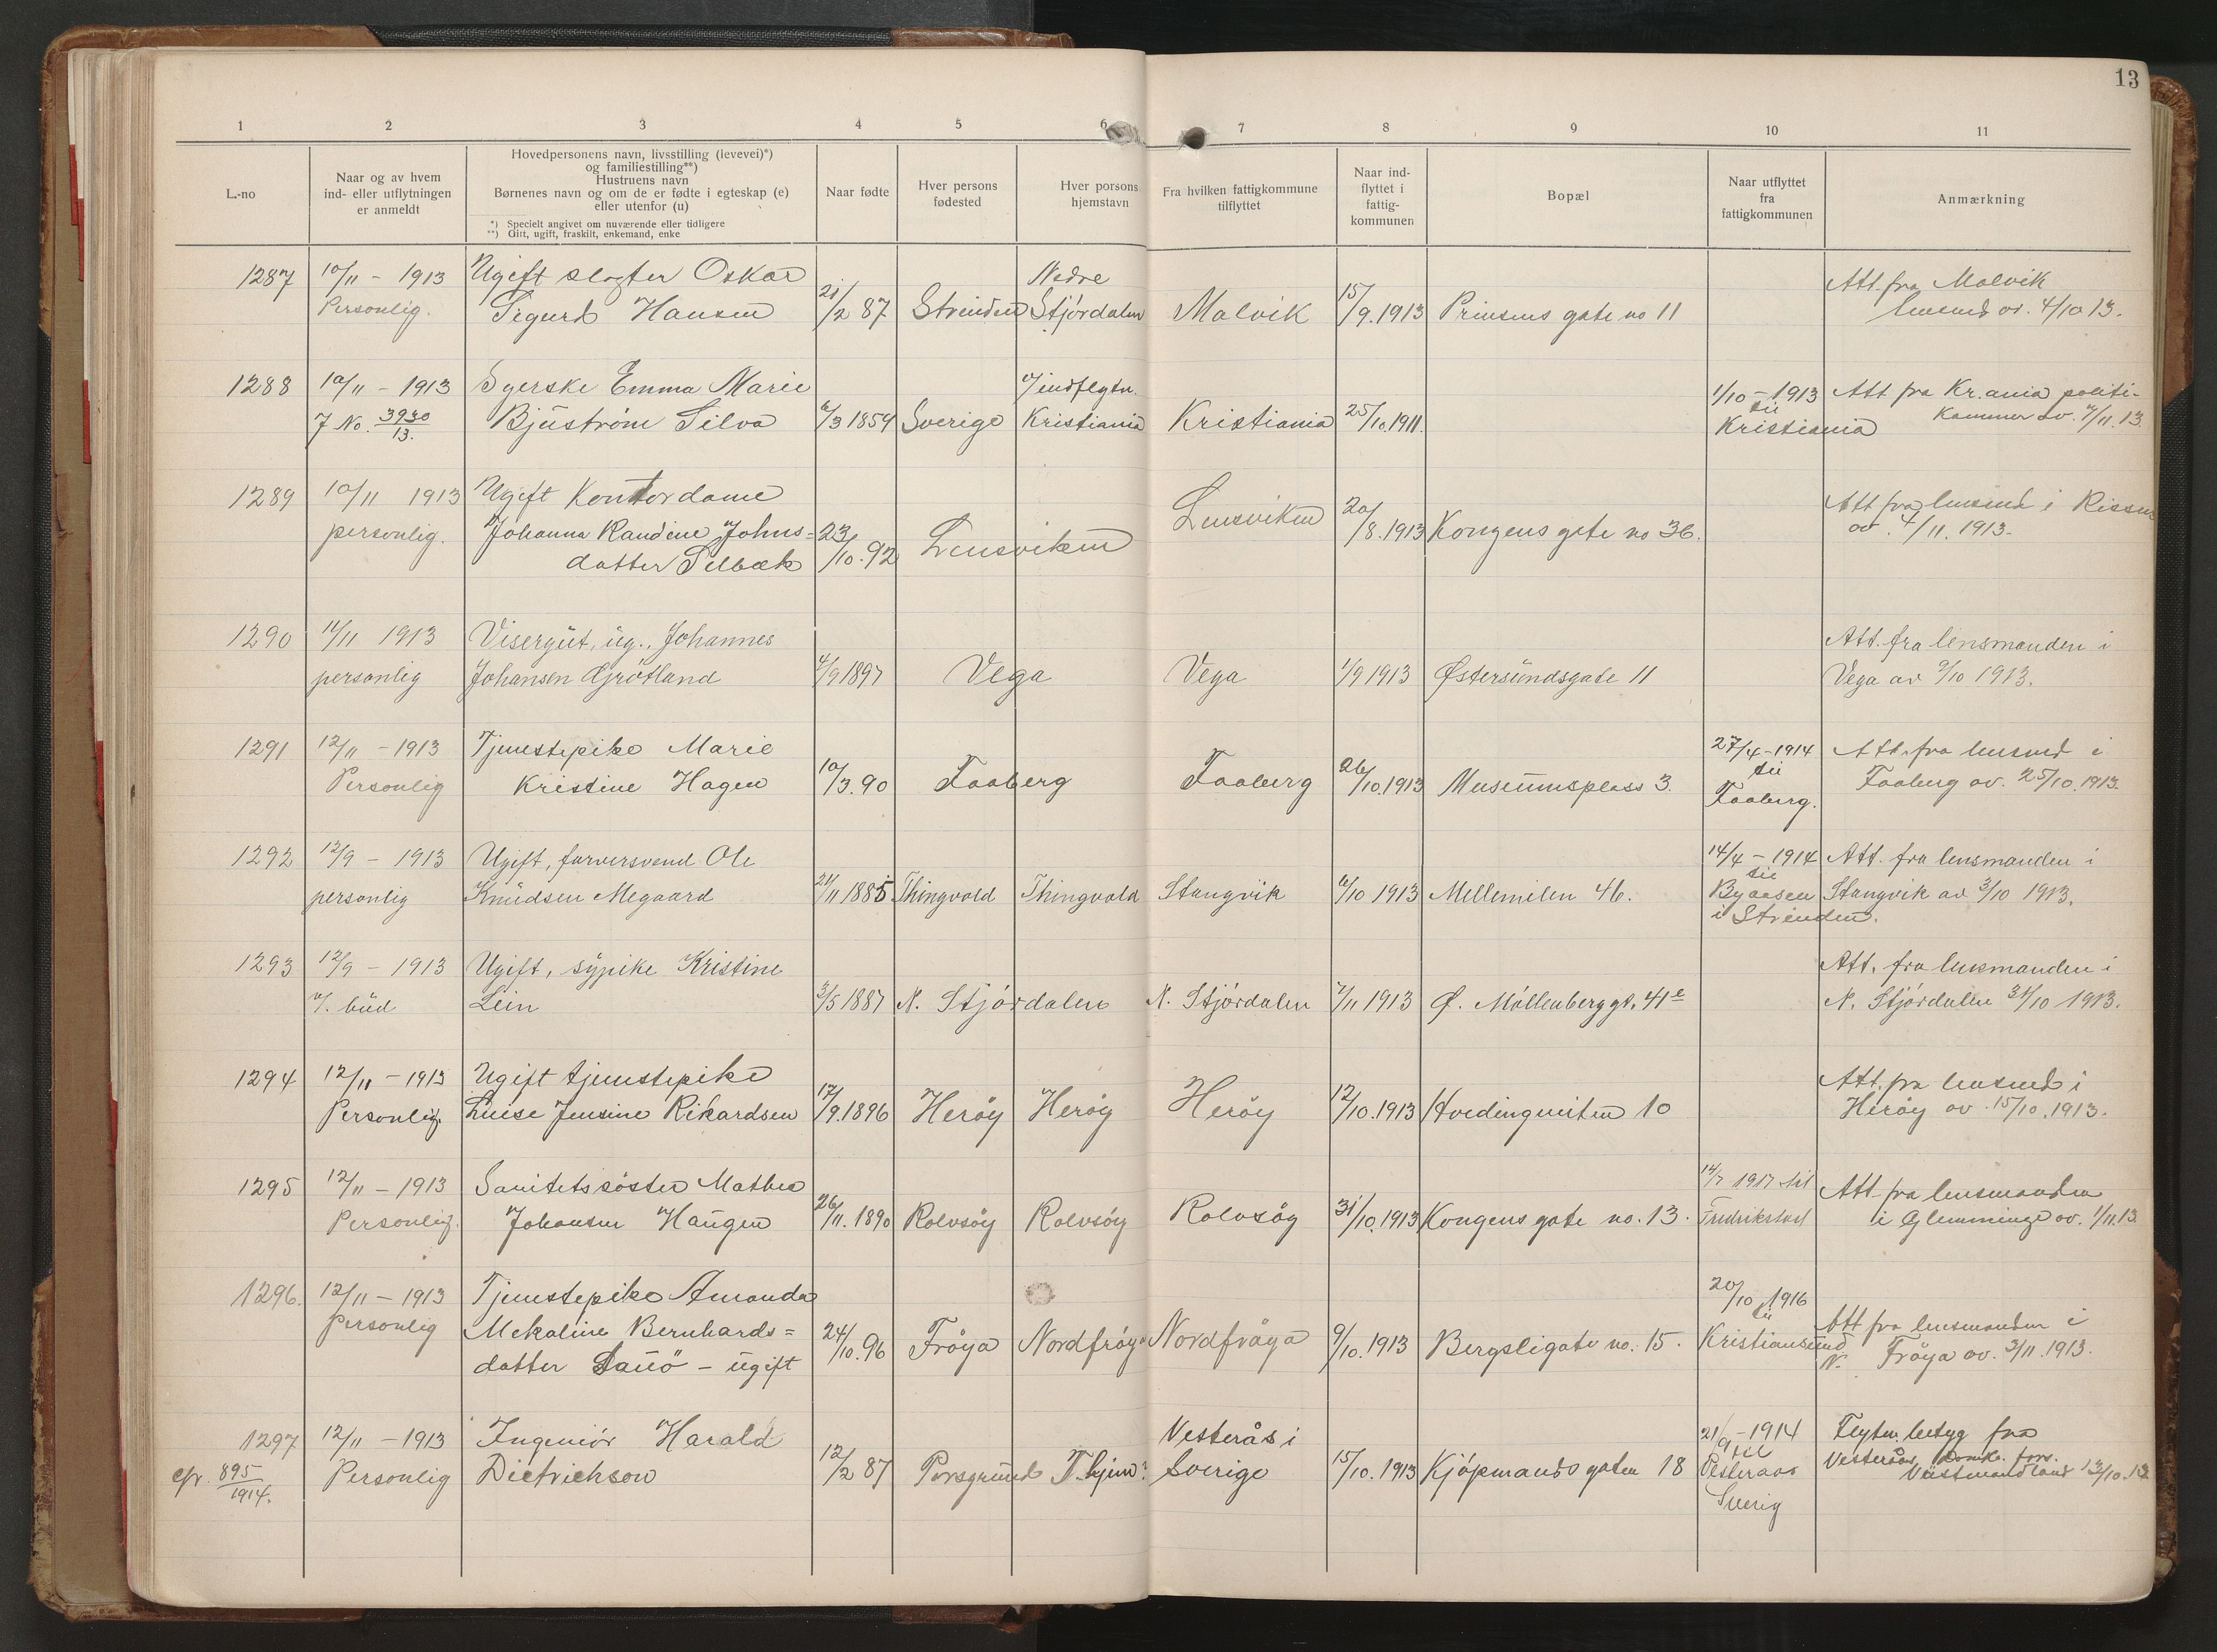 13
1 2 3 4 5 6 7 8 9 10 11
L.-no
Naar og av hvem
ind- eller utflytningen
er anmeldt
Hovedpersonens navn, livsstilling (levevei)*)
og familiestilling**)
Hustruens navn
Børnenes navn og om de er fødte i egteskap (e)
eller utenfor (u)
*) Specielt angivet om nuværende eller tidligere
**) Gift, ugift, fraskilt, enkemand, enke
Naar fødte
Hver persons
fødested
Hver persons
hjemstavn
Fra hvilken fattigkommune
tilflyttet
Naar ind-
flyttet i
fattig-
kommunen
Bopæl
Naar utflyttet
fra
fattigkommunen
Anmærkning
1287 10/11 - 1913 Ugift slagter Oskar Nedre Att. fra Malvik
Personlig. Sigurd Hansen 21/2 87 Strinden Stjördalen Malvik 15/9.1913 Prinsens gate no 11 lensmd av. 4/10 13.
1288 10/11 - 1913 Syerske Emma Marie v/indflytn. 1/10 - 1913 Att fra Kr.ania politi-
J No. 3930/13. Bjuström Silva 6/3 1854 Sverige Kristiania Kristiania 25/10.1911. til Kristiania kammer av. 7/11.13.
1289 10/11 1913 Ugift Kontordame Lensviken Att fra lensmd i Rissen
personlig. Johanna Randine Johns= 23/10.92 Lensviken 20/8.1913 Kongens gate no 36. av. 4/11.1913.
datter Selbæk
1290 11/11 1913 Visergut, ug., Johannes Att. fra lensmanden i
personlig Johansen Grötland 4/9 1897 Vega Vega 1/9 1913 Østersundsgate 11 Vega av 9/10 1913.
1291 12/11 - 1913 Tjenestepike Marie 27/4 - 1914 Att. fra lensmd i
Personlig Kristine Hagen 10/3.90 Faaberg Faaberg 26/10.1913 Museumsplass 3. til Faaberg. Faaberg av. 25/10.1913.
1292 12/9 - 1913 Ugift, farversvend Ole 14/4 - 1914 Att. fra lensmanden i
personlig Knudsen Megaard 21/11 1885 Thingvold Thingvold Stangvik 6/10 1913 Mellemilen 46. til Byaasen Stangvik av 3/10 1913.
i Strinden.
1293 12/9 - 1913 Ugift, sypike Kristine Att. fra lensmanden i
v/. bud Lein 3/5 1887 N. Stjördalen N. Stjördalen 7/11 1913 Ø. Möllenberggt. 41e N. Stjördalen 31/10 1913.
1294 12/11 - 1913 Ugift tjenestepike Att. fra lensmd i
Personlig. Luise Jensine Rikardsen 17/9.1896 Heröy Heröy Heröy 12/10.1913 Hvedingsveiten 10 Heröy av. 15/10.1913.
1295 12/11 - 1913 Sanitetssöster Mathea 14/7 1917 til Att fra lensmanden
Personlig. Johansen Haugen 26/11.1890 Rolvsöy Rolvsöy Rolvsöy 31/10.1913 Kongens gate no. 13. Fredrikstad i Glemminge av. 1/11.13.
1296. 12/11 - 1913 Tjenestepike Amanda 20/10 1916
Personlig Mekaline Bernhards= 24/10.96 Fröya Nordfröya Nordfröya 9/10.1913 Bergsligate no. 15. til Kristiansund N. Att fra lensmanden i
datter Sauö - ugift Fröya av. 3/11.1913.
1297 12/11 - 1913 Ingeniör Harald Vesterås i 21/9 - 1914 Flytn. betyg fra
cfr. 895/1914. Personlig Dietrichson 12/2 87 Porsgrund T.hjem? Sverige 15/10.1913 Kjöpmandsgaten 18 til Vesteraas Vesterås Domk. förs.
Sverig Västmandland 13/10.13